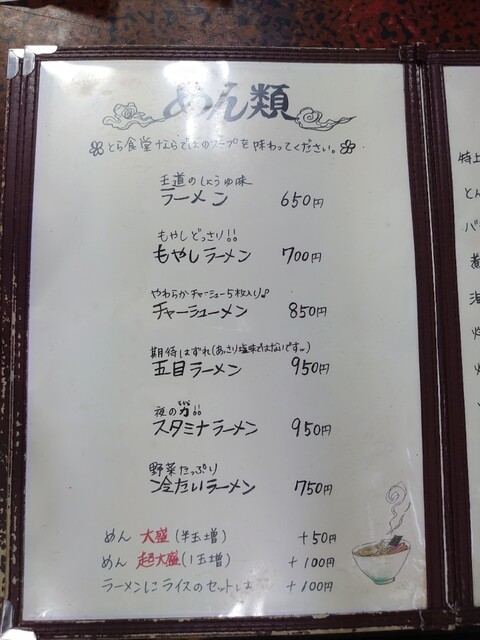 めん類
とら食堂ならではのスープを味わってください。
王道のしょうゆ味
ラーメン 650円
もやしどっさり!!
もやしラーメン 700円
やわらかチャーシュー5枚入り♪
チャーシューメン 850円
期待はずれ(あっさり塩味ではないです)
五目ラーメン 950円
夜の力!!
スタミナラーメン 950円
野菜たっぷり
冷たいラーメン 750円
めん 大盛(半玉増) +50円
めん 超大盛(1玉増) +100円
ラーメンにライスのセットは +100円
特上
とん